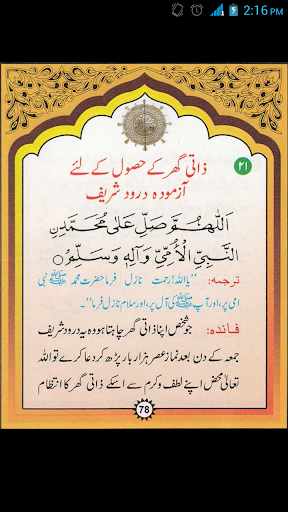 2:16 PM
۲۱
ذاتی گھر کے حصول کے لئے
آزمودہ درود شریف
اَللّٰهُمَّ صَلِّ عَلٰى مُحَمَّدِنِ
النَّبِيِّ الْاُمِّيِّ وَاٰلِهٖ وَسَلِّمْ
ترجمہ: ”یا اللہ! رحمت نازل فرما حضرت محمد ﷺ نبی
امی پر، اور آپ ﷺ کی آل پر، اور سلام نازل فرما“۔
فائدہ: جو شخص اپنا ذاتی گھر چاہتا ہو وہ یہ درود شریف
جمعہ کے دن بعد نماز عصر ہزار بار پڑھ کر دعا کرے تو اللہ
تعالیٰ محض اپنے لطف و کرم سے اسکے ذاتی گھر کا انتظام
78